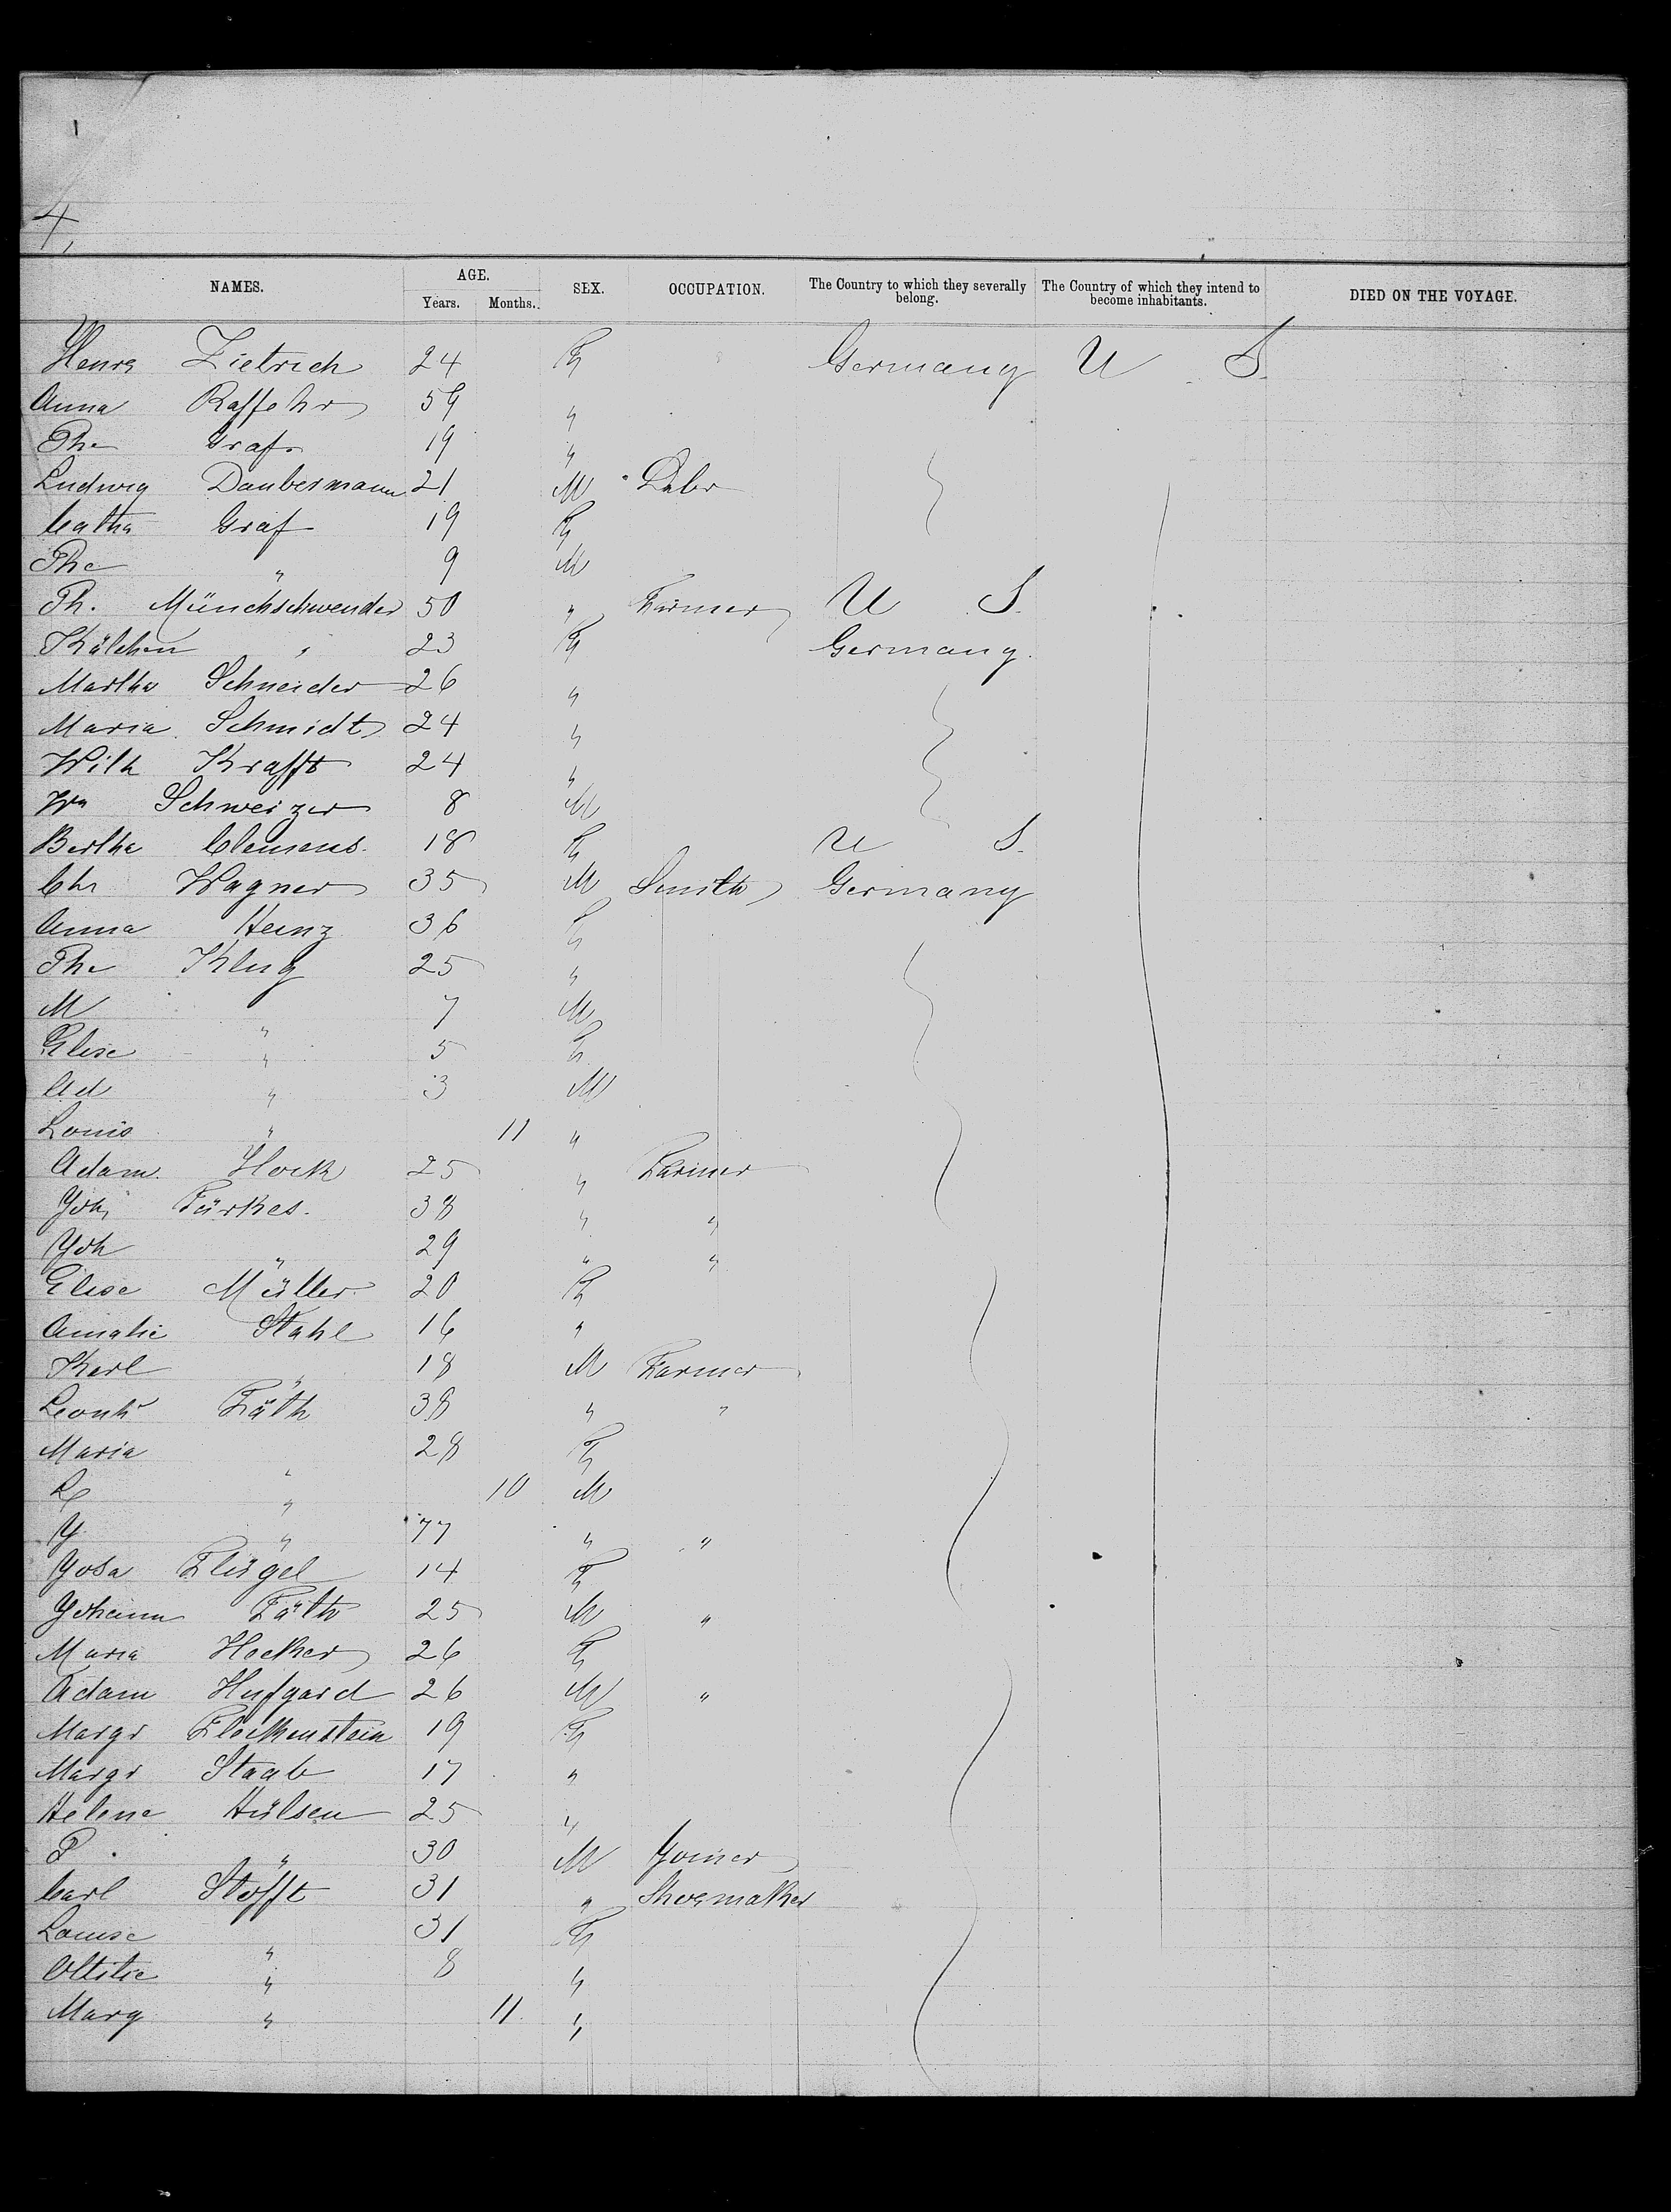 4,
NAMES. AGE. Years. Months. SEX. OCCUPATION. The Country to which they severally belong. The Country of which they intend to become inhabitants. DIED ON THE VOYAGE.
Henrs Zietrich 24 F Germany U S.
Anna Raffohr 59 "
Phe Graf 19 "
Ludwig Daubermann 21 M Labr
Catha Graf 19 F
Phe " 9 M
Ph. Münchschwender 50 " Farmer U S.
Kälchen " 23 F Germany.
Martha Schneider 26 "
Maria Schmidt 24 "
Wilh Krafft 24 "
Wm Schweizer 8 M
Bertha Clemens. 18 F U S.
Chr Wagner 35 M Smith Germany
Anna Heinz 36 F
Phe Klug 25 "
M " 7 M
Elise " 5 F
Ad " 3 M
Louis " 11 "
Adam Hock 25 " Farmer
Joh Türkes. 38 " "
Joh " 29 " "
Elise Müller 20 F
Amalie Stahl 16 "
Karl " 18 M Farmer
Leonhr Fäth 38 " "
Maria " 28 F
L " 10 M
J " 77 " "
Josa Flügel 14 F
Johann Fäth 25 M "
Maria Hocker 26 F
Adam Hufgard 26 M "
Margr Fleckenstein 19 F
Margr Staab 17 "
Helene Hülsen 25 "
P. " 30 M Joiner
Carl Stofft 31 " Shoemaker
Louise " 31 F
Ottilie " 8 "
Marg " 11. "